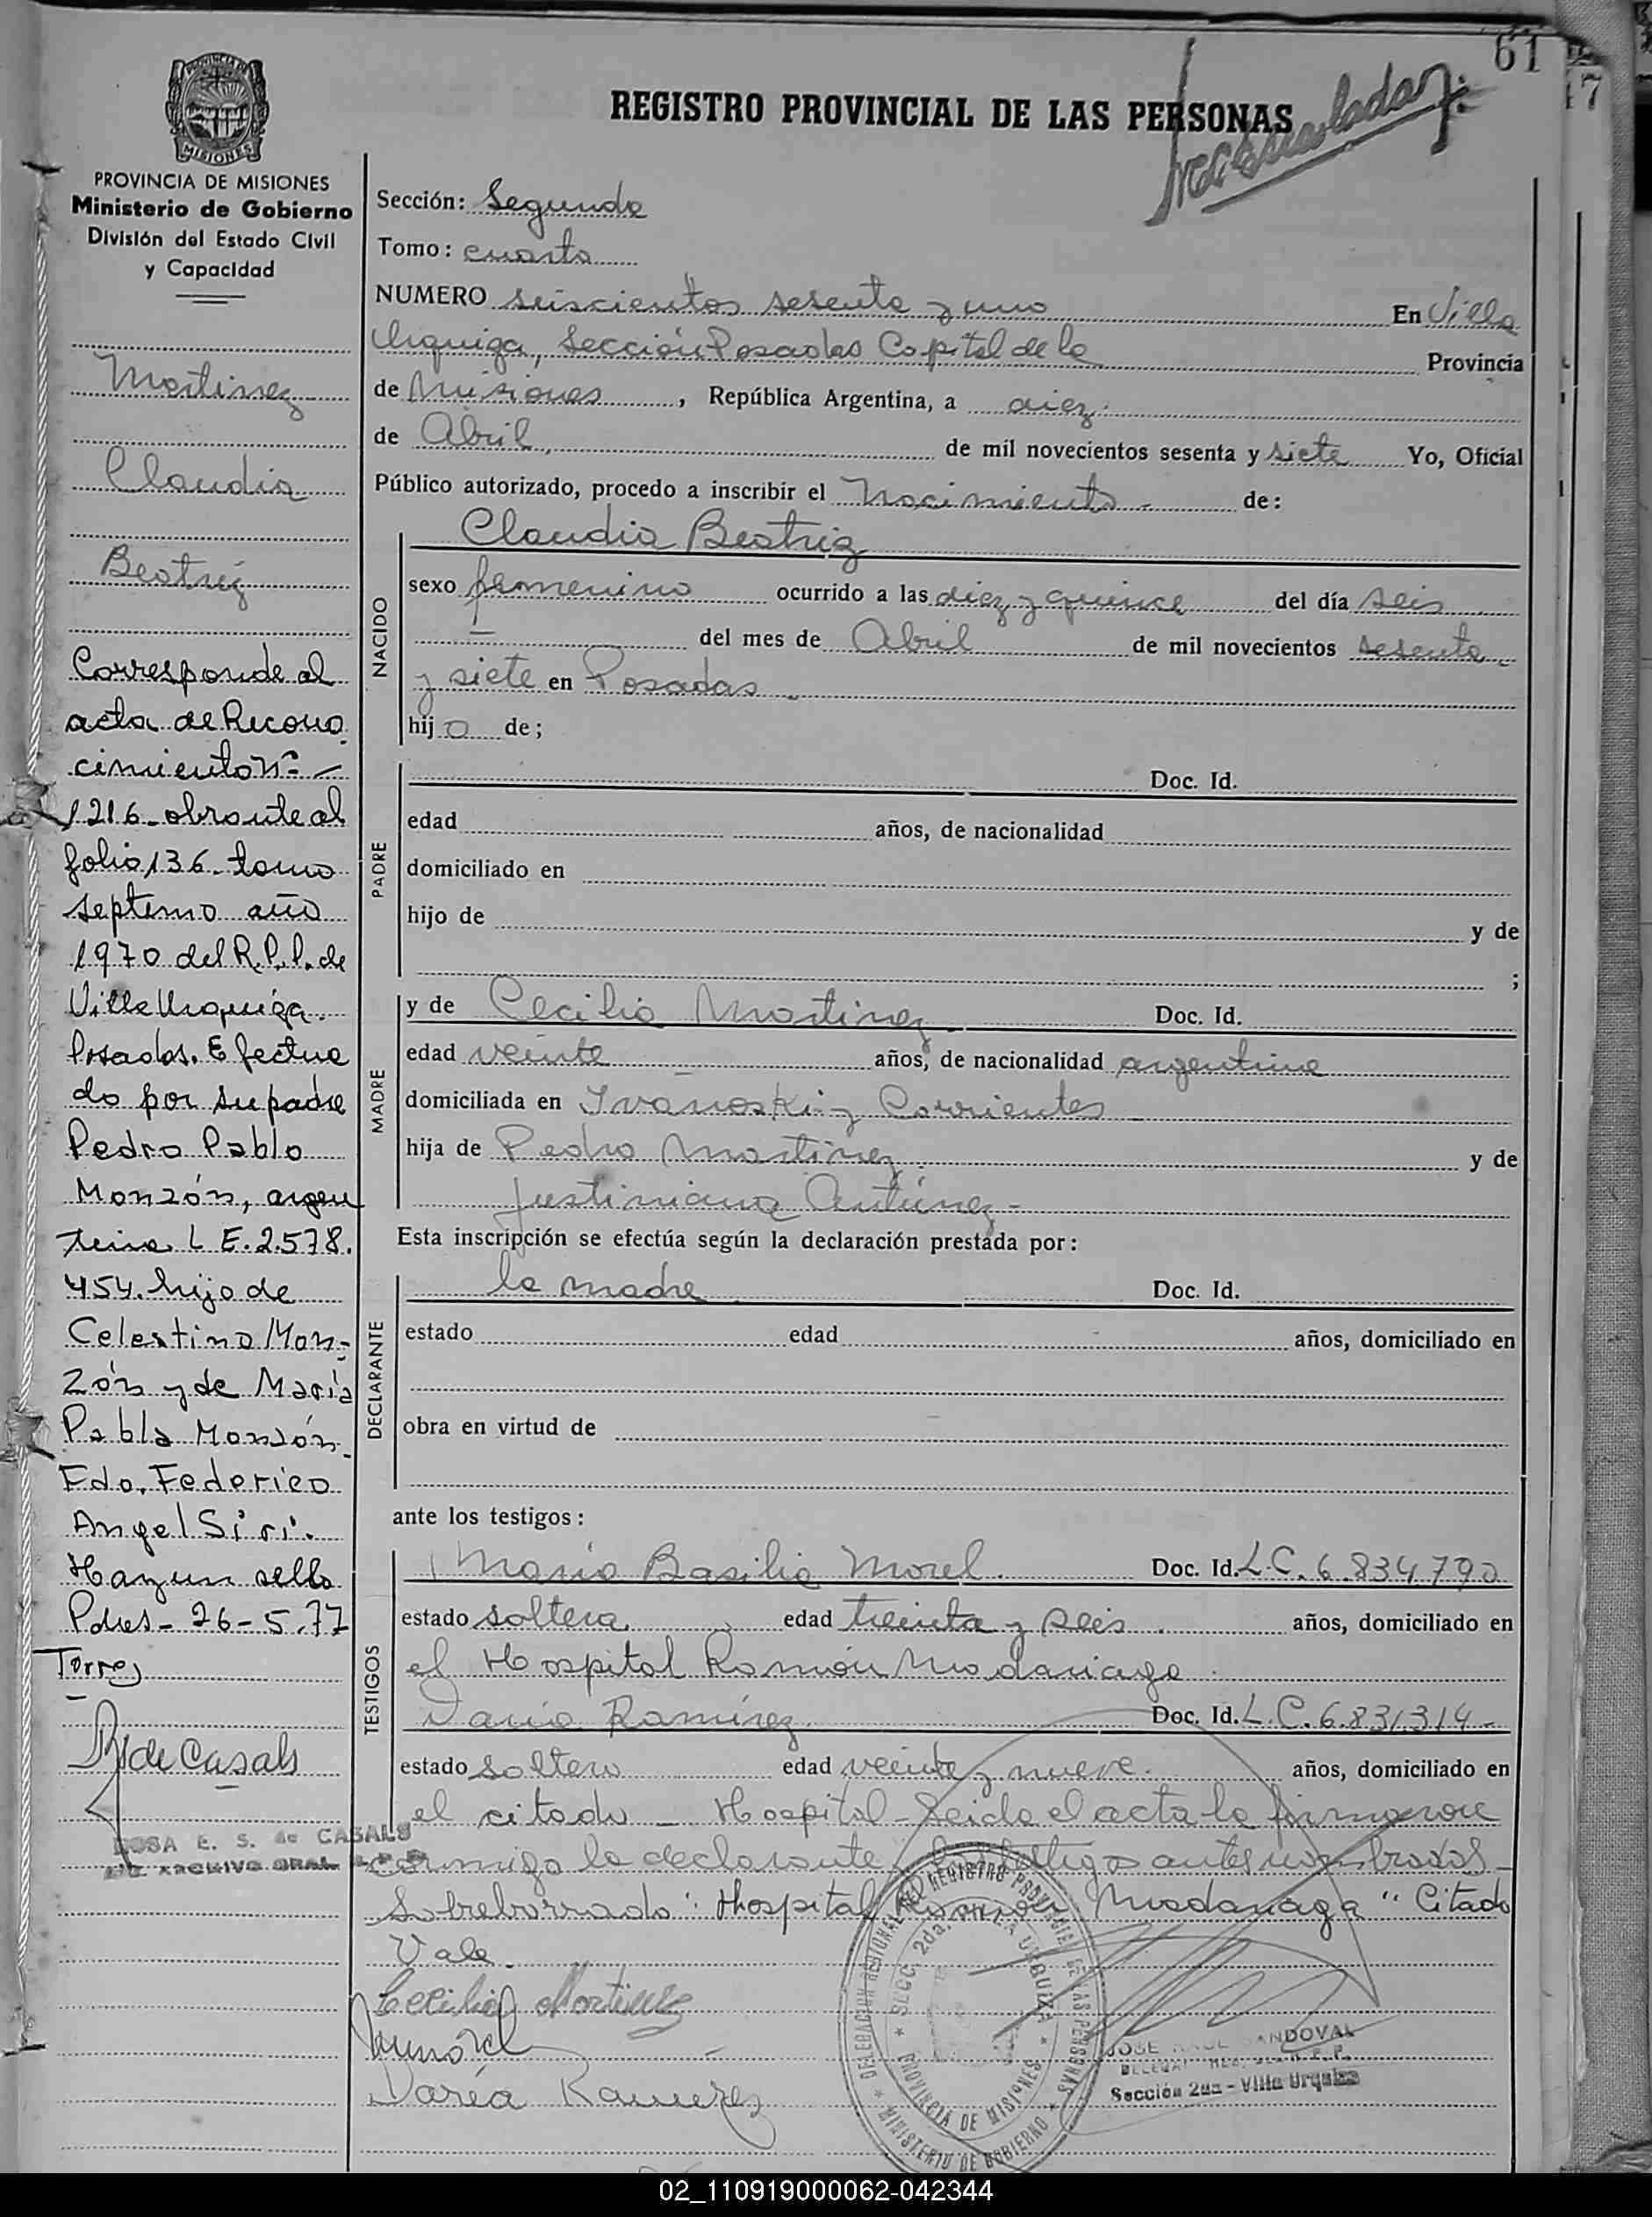 61
17
PROVINCIA DE
MISIONES
PROVINCIA DE MISIONES
Ministerio de Gobierno
División del Estado Civil
y Capacidad
REGISTRO PROVINCIAL DE LAS PERSONAS
Sección: Segunda
Tomo: cuarto
NUMERO seiscientos sesenta y uno En Villa
Urquiza, Sección Posadas Capital de la Provincia
de Misiones, República Argentina, a diez
de Abril de mil novecientos sesenta y siete Yo, Oficial
Público autorizado, procedo a inscribir el Nacimiento - de:
NACIDO
Claudia Beatriz
sexo femenino ocurrido a las diez y quince del día seis
— del mes de Abril de mil novecientos sesenta
y siete en Posadas
hija de;
PADRE
Doc. Id.
edad años, de nacionalidad
domiciliado en
hijo de y de
;
MADRE
y de Cecilia Martinez Doc. Id.
edad veinte años, de nacionalidad argentina
domiciliada en Ivanoski y Corrientes
hija de Pedro Martinez y de
Justiniana Antúnez -
Esta inscripción se efectúa según la declaración prestada por:
DECLARANTE
la madre Doc. Id.
estado edad años, domiciliado en
obra en virtud de
ante los testigos:
TESTIGOS
Maria Basilia Morel. Doc. Id. L.C. 6.834.790
estado soltera edad treinta y seis años, domiciliado en
el Hospital Ramón Madariaga
Daria Ramírez Doc. Id. L.C. 6.831.314 -
estado soltera edad veinte y nueve. años, domiciliado en
el citado - Hospital - Leida el acta la firmaron
conmigo la declarante y testigos antes nombrados -
Sobreborrado: Hospital Ramón Madariaga" Citado
Vale.
Cecilia Martinez
Daria Ramirez
Martinez
Claudia
Beatriz
Corresponde al
acta de Recono
cimiento Nº —
1216 - obrante al
folio 136 - tomo
septimo año
1970 del R.P.P. de
Villa Urquiza.
Posadas. Efectua
do por su padre
Pedro Pablo
Monzón, argen
tino L E. 2.578.
454. hijo de
Celestino Mon-
zón y de María
Pabla Monzón.
Fdo. Federico
Angel Siri.
Hay un sello
Pdas - 26 - 5.77
Torres
R de Casals
ROSA E. S. de CASALS
ARCHIVO GRAL.
DELEGACION REGIONAL DEL REGISTRO PROVINCIAL DE LAS PERSONAS
SECC. 2da. VILLA URQUIZA
PROVINCIA DE MISIONES
MINISTERIO DE GOBIERNO
JOSE RAUL SANDOVAL
Sección 2da - Villa Urquiza
02_110919000062-042344